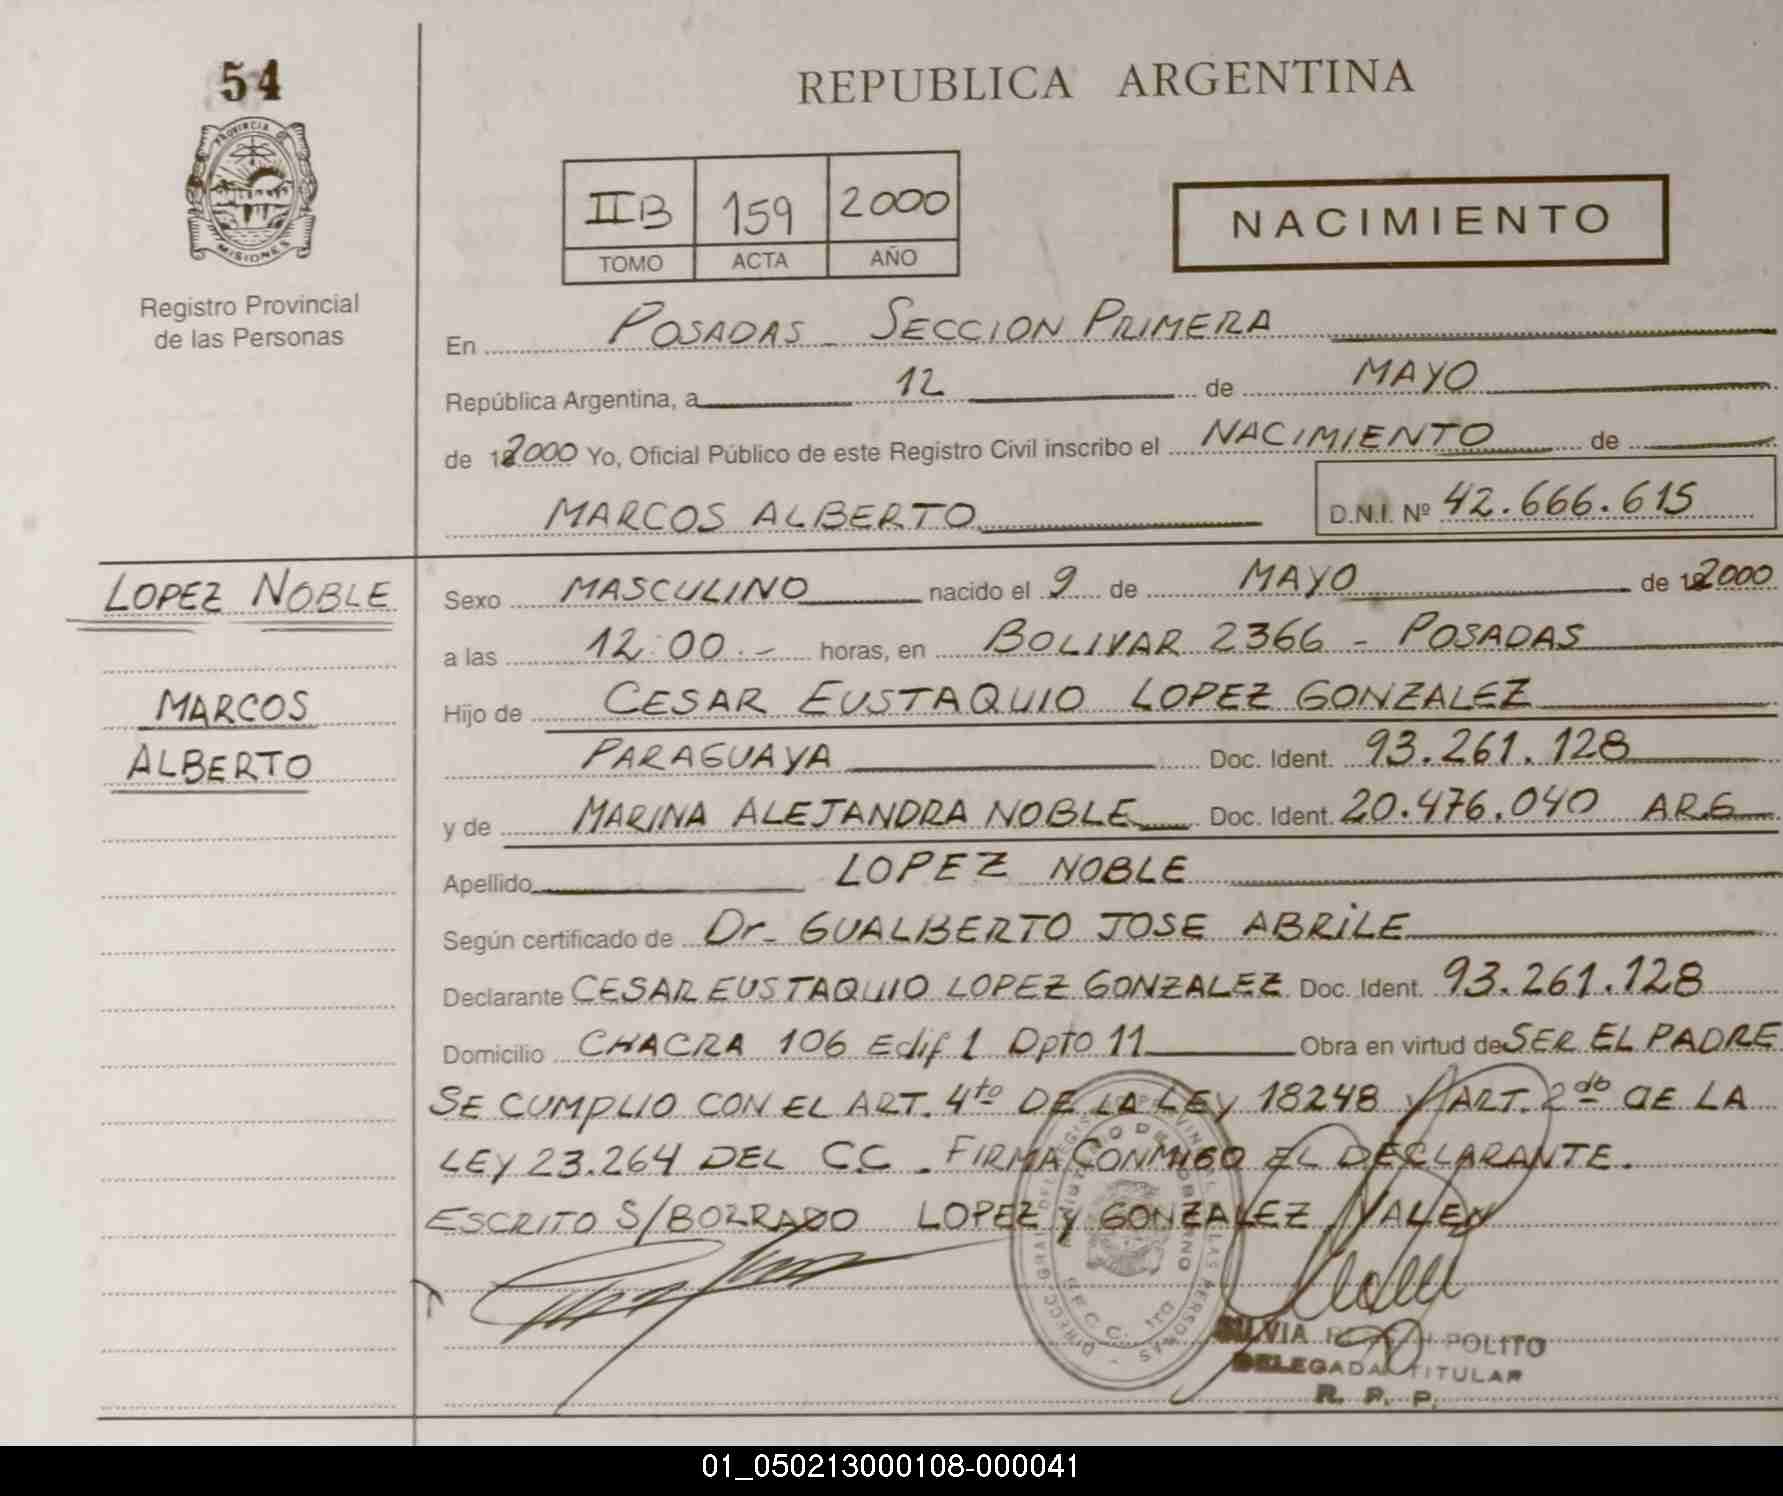 54
PROVINCIA DE
MISIONES
Registro Provincial
de las Personas
REPUBLICA ARGENTINA
IIB 159 2000
TOMO ACTA AÑO
NACIMIENTO
En POSADAS - SECCION PRIMERA
República Argentina, a 12 de MAYO
de 2000 Yo, Oficial Público de este Registro Civil inscribo el NACIMIENTO de
MARCOS ALBERTO D.N.I. Nº 42.666.615
LOPEZ NOBLE
MARCOS
ALBERTO
Sexo MASCULINO nacido el 9 de MAYO de 2000
a las 12:00.- horas, en BOLIVAR 2366 - POSADAS
Hijo de CESAR EUSTAQUIO LOPEZ GONZALEZ
PARAGUAYA Doc. Ident. 93.261.128
y de MARINA ALEJANDRA NOBLE Doc. Ident. 20.476.040 ARG
Apellido LOPEZ NOBLE
Según certificado de Dr. GUALBERTO JOSE ABRILE
Declarante CESAR EUSTAQUIO LOPEZ GONZALEZ Doc. Ident. 93.261.128
Domicilio CHACRA 106 Edif 1 Dpto 11 Obra en virtud de SER EL PADRE
SE CUMPLIO CON EL ART. 4to DE LA LEY 18248 y ART. 2do DE LA
LEY 23.264 DEL CC. FIRMA CONMIGO EL DECLARANTE.
ESCRITO S/BORRADO LOPEZ y GONZALEZ, VALEN
SILVIA POLITO
DELEGADA TITULAR
R. P. P.
01_050213000108-000041